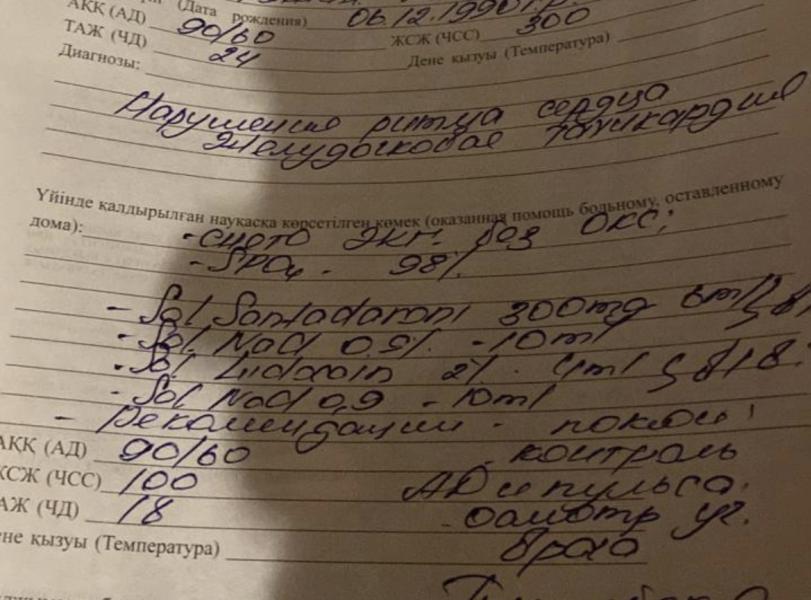 (Дата рождения) 06.12.1990 г.р.
АҚҚ (АД) 90/60 ЖСЖ (ЧСС) 300
ТАЖ (ЧД) 24 Дене қызуы (Температура)
Диагнозы:
Нарушение ритма сердца
Желудочковая тахикардия
Үйінде қалдырылған науқасқа көрсетілген көмек (оказанная помощь больному, оставленному
дома): -снято ЭКГ. без ОКС;
- SPO₂ - 98%.
- Sol 300mg 6ml
- Sol. NaCl 0,9%. -10ml
- Sol Lidocain 2%. 4ml
- Sol NaCl 0,9 - 10ml
- Рекомендации - покой!
АҚҚ (АД) 90/60 - контроль
ЖСЖ (ЧСС) 100 АД и пульса.
ТАЖ (ЧД) 18 - осмотр уч.
Дене қызуы (Температура) врача